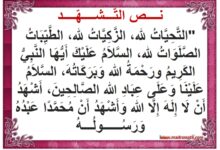 نص التشهد
"التَّحِيَّاتُ لله، الزَّكِيَّاتُ لله، الطَّيِّبَاتُ
الصَّلَوَاتُ لله، السَّلَامُ عَلَيْكَ أَيُّهَا النَّبِيُّ
الكَرِيمُ وَرَحْمَةُ اللهِ وَبَرَكَاتُهُ، السَّلَامُ
عَلَيْنَا وَعَلَى عِبَادِ اللهِ الصَّالِحِينَ، أَشْهَدُ
أَنْ لَا إِلَهَ إِلَّا الله وَأَشْهَدُ أَنَّ مُحَمَّدًا عَبْدُهُ
وَرَسُولُهُ